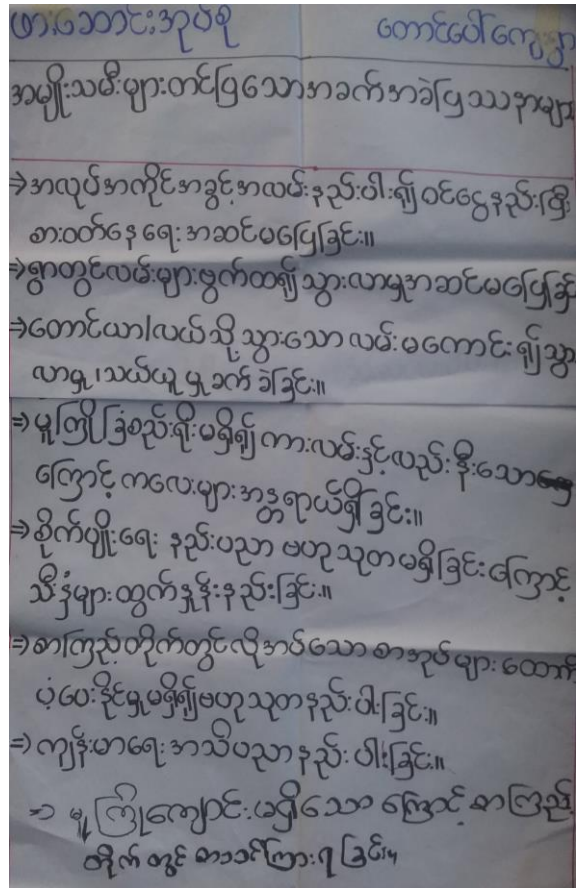 ဖားဆောင်းအုပ်စု တောင်ပေါ်ကျေးရွာ
အမျိုးသမီးများတင်ပြသောအခက်အခဲပြဿနာများ
⇒အလုပ်အကိုင်အခွင့်အလမ်းနည်းပါး၍ ဝင်ငွေနည်းပြီး
စားဝတ်နေရေးအဆင်မပြေခြင်း။
⇒ရွာတွင်လမ်းများဗွက်ထ၍ သွားလာမှုအဆင်မပြေခြင်း
⇒တောင်ယာ၊လယ်သို့သွားသော လမ်းမကောင်း၍ သွား
လာမှု၊သယ်ယူမှုခက်ခဲခြင်း။
⇒မူကြိုခြံစည်းရိုးမရှိ၍ ကားလမ်းနှင့်လည်းနီးသော
ကြောင့် ကလေးများအန္တရာယ်ရှိခြင်း။
⇒စိုက်ပျိုးရေး နည်းပညာ ဗဟုသုတမရှိခြင်းကြောင့်
သီးနှံများထွက်နှုန်းနည်းခြင်း။
⇒စာကြည့်တိုက်တွင်လိုအပ်သောစာအုပ်များ ထောက်
ပံ့ပေးနိုင်မှုမရှိ၍ဗဟုသုတနည်းပါးခြင်း။
⇒ကျန်းမာရေးအသိပညာနည်းပါးခြင်း။
⇒ မူကြိုကျောင်းမရှိသောကြောင့် စာကြည့်
တိုက်တွင် စာသင်ကြားရခြင်း။